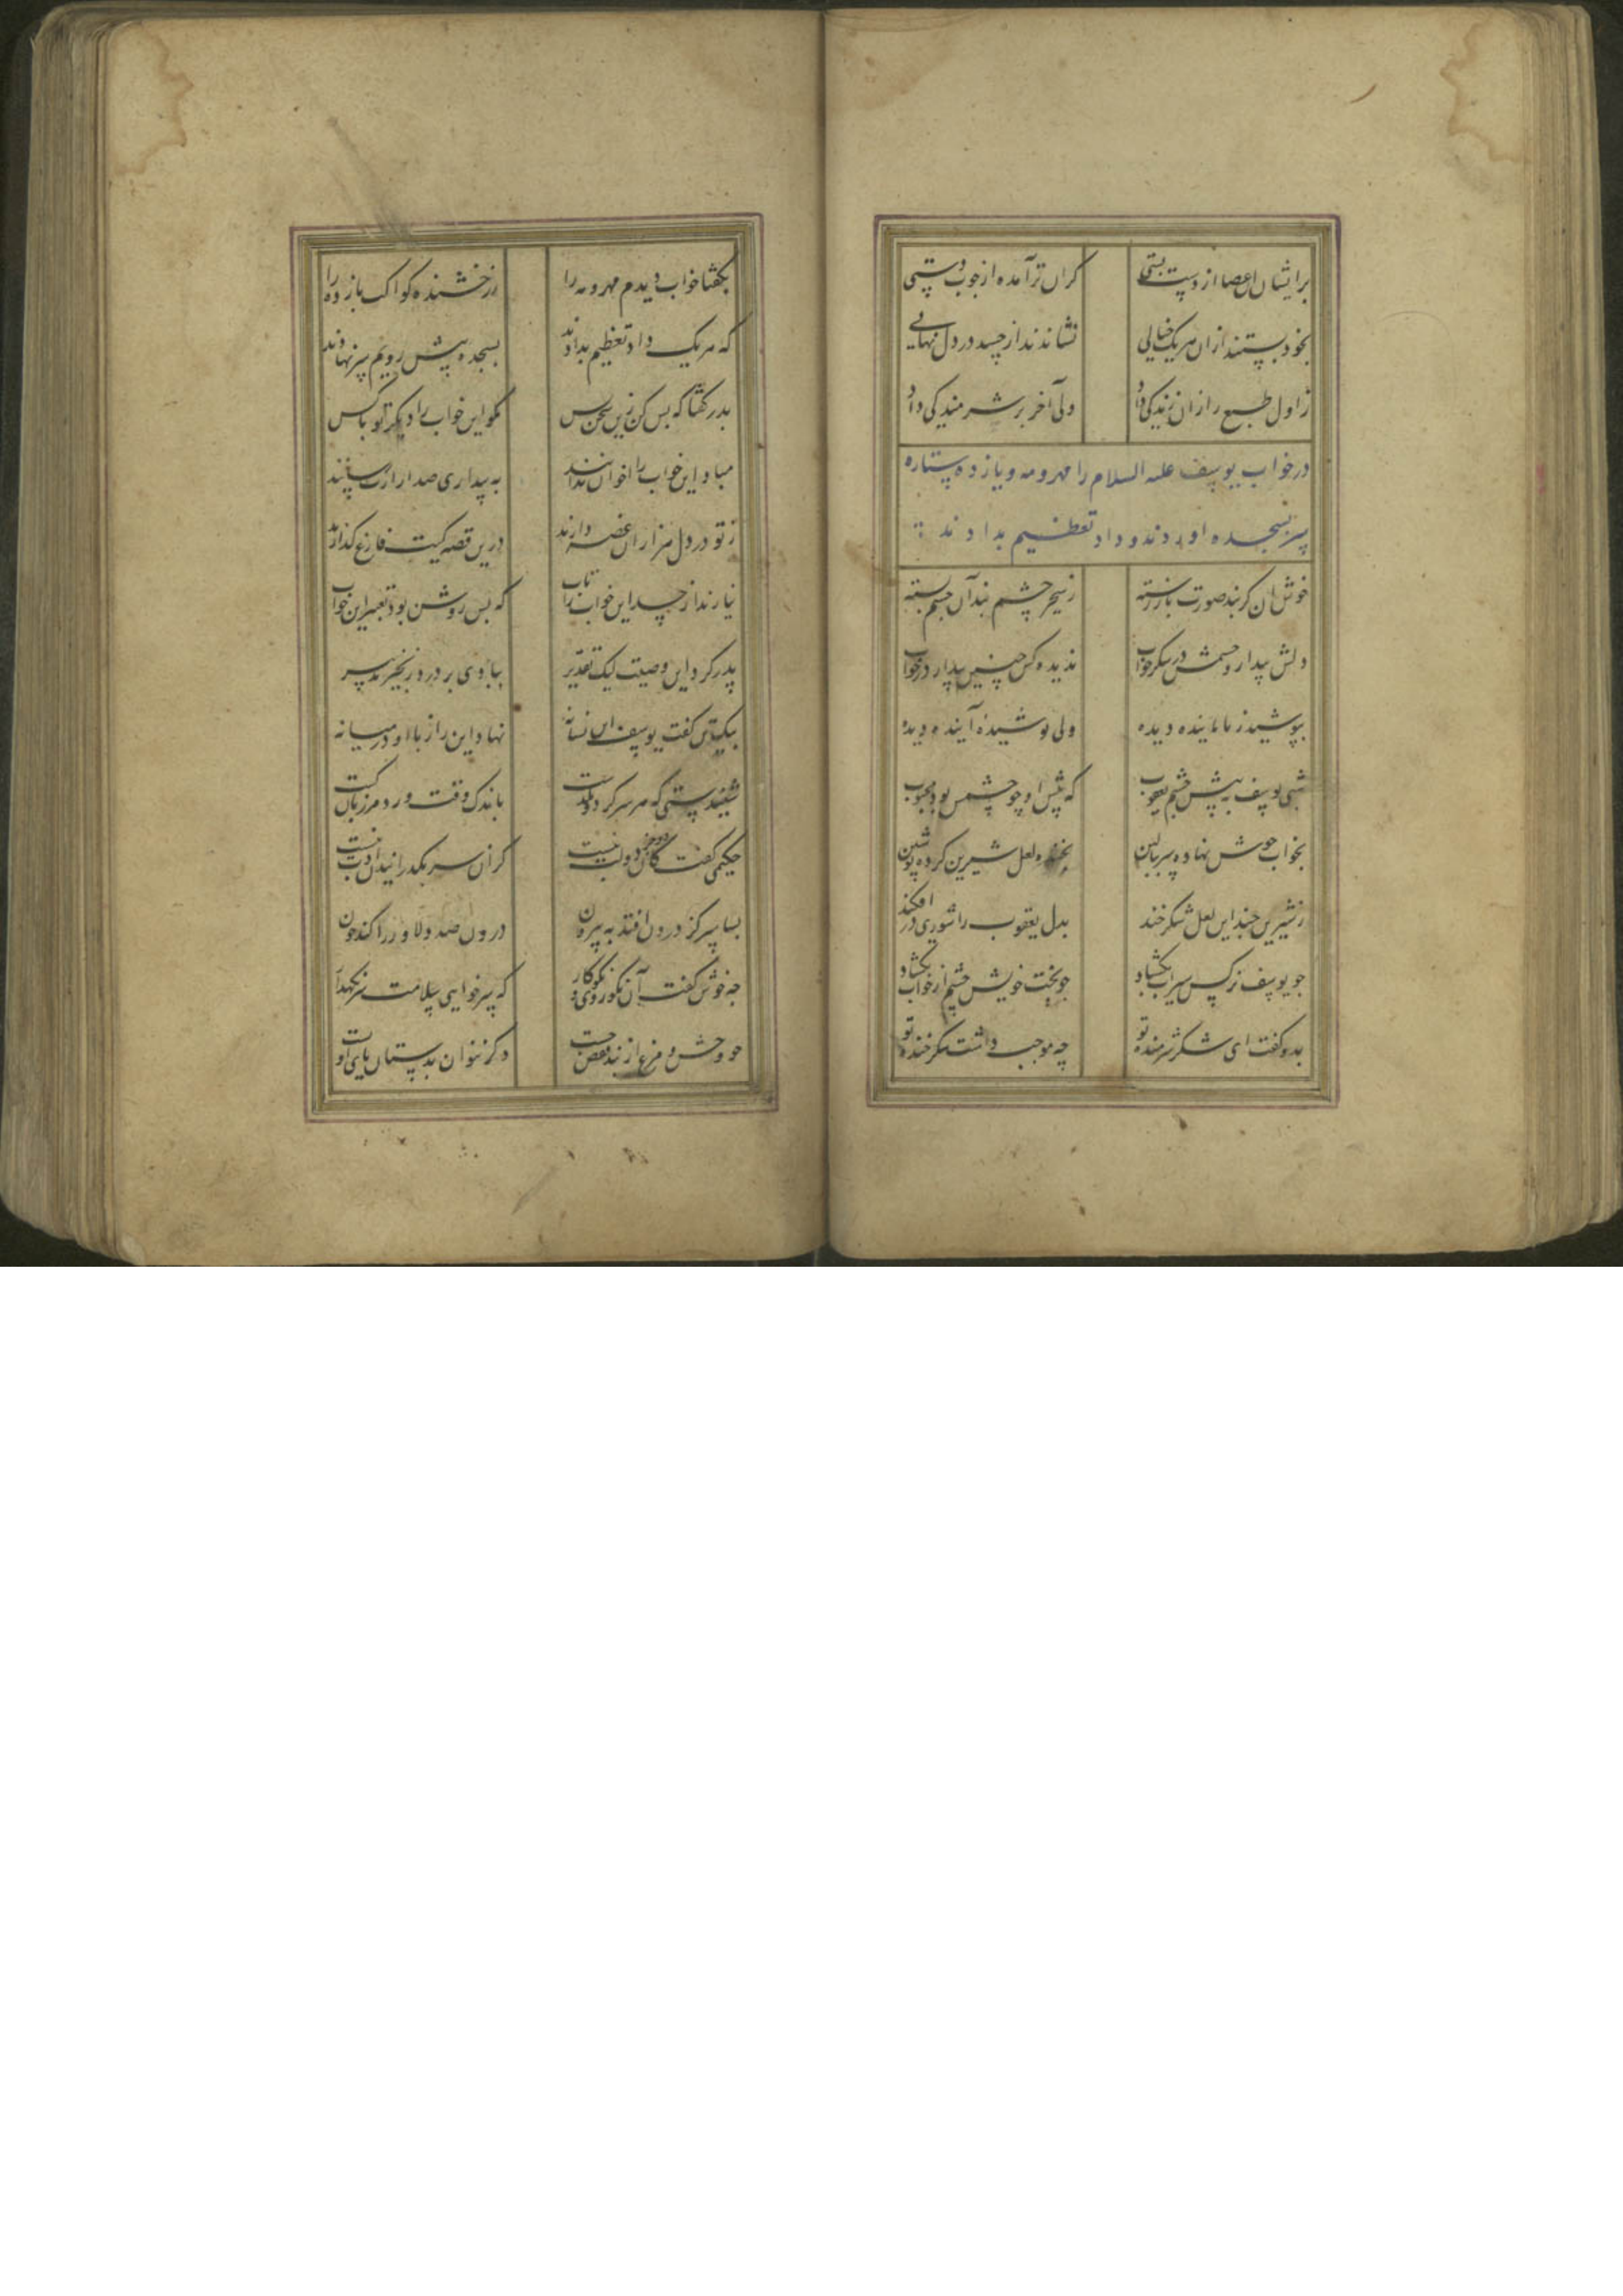 برایشان ان عصا از دست بستی گران تر آمده از چوب دستی
بخود بستند ازان هر یک خیالی نشاندند از حسد در دل نهالی
ز اول طبع را زان زندگی داد ولی آخر بر شرمندگی داد
در خواب یوسف علیه السلام را مهر و مه و یازده ستاره
سر بسجده اوردند و داد تعظیم بدادند
خوش ان کز بند صورت باز رسته ز سحر چشم بند آن چشم بسته
دلش بیدار و چشمش در شکر خواب ندیده کس چنین بیدار در خواب
بپوشید ز ناپاینده دیده ولی پوشیده آینده دیده
شبی یوسف به پیش چشم یعقوب که پیش او چو چشمش بود محبوب
بخواب خوش نهاده سر ببالین بخنده لعل شیرین کرده نوشین
ز شیرین خند این لعل شکر خند بدل یعقوب را شوری در افکند
چو یوسف نرگس سیراب بگشاد چو بخت خویش چشم از خواب بگشاد
بدو گفت ای شکر شرمنده تو چه موجب داشت شکر خنده تو
بگفتا خواب دیدم مهر و مه را ز رخشنده کواکب یازده را
که هر یک داد تعظیم بدادند بسجده پیش رویم سر نهادند
پدر گفتا که بس کن زین سخن بس مگو این خواب را دیگر تو با کس
مباد این خواب را اخوان بدانند به بیداری صد ازارت رسانند
ز تو در دل هزاران غصه دارند درین قصه کیت فارغ گذارند
نیارند از حسد این خواب را تاب که بس روشن بود تعبیر این خواب
پدر کرد این وصیت لیک تقدیر ببادی بر درد زنجیر تدبیر
بیکتن گفت یوسف این فسانه نهاد این راز با او در میانه
شنیدستی که هر سر کز دو بگذشت باندک وقت ورد هر زبان گشت
حکیمی گفت کان دو جز دو لب نیست کزان سر بگذرانیدن ادب نیست
بسا سر کز درون افتد به بیرون درون صد دلاور را کند خون
چه خوش گفت آن نکوروی نکوکار که سر خواهی سلامت سر نگهدار
چو وحش و مرغ از بند قفص جست دگر نتوان بدستان پای او بست